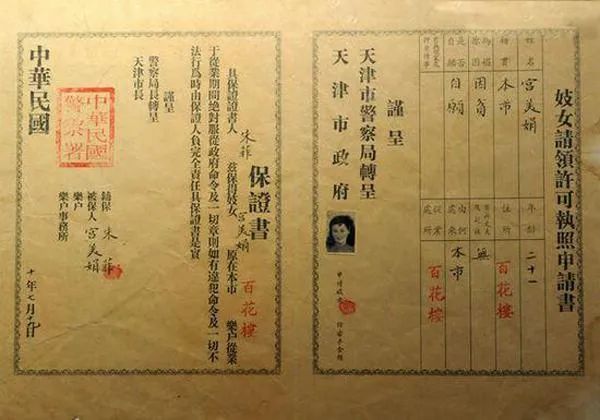 妓女請領許可執照申請書
姓名 宮美娟 年齡 二十一
籍貫 本市 住所 百花樓
為娼原因 因貧 無
是否自願 自願 由何處來 本市
從業處所 百花樓
謹呈
天津市警察局轉呈
天津市政府
保證書
具保證書人 朱菲 茲保得妓女 宮美娟 原在本市 百花樓 樂户從業
于從業期間絶對服從政府命令及一切章則如有違犯命令及一切不
法行爲時由保證人負完全責任具保證書是實
謹呈
警察局長轉呈
天津市長
鋪保 朱菲
被保人 宮美娟
樂户
樂户事務所
中華民國
中華民國
警察署
十年七月十九日